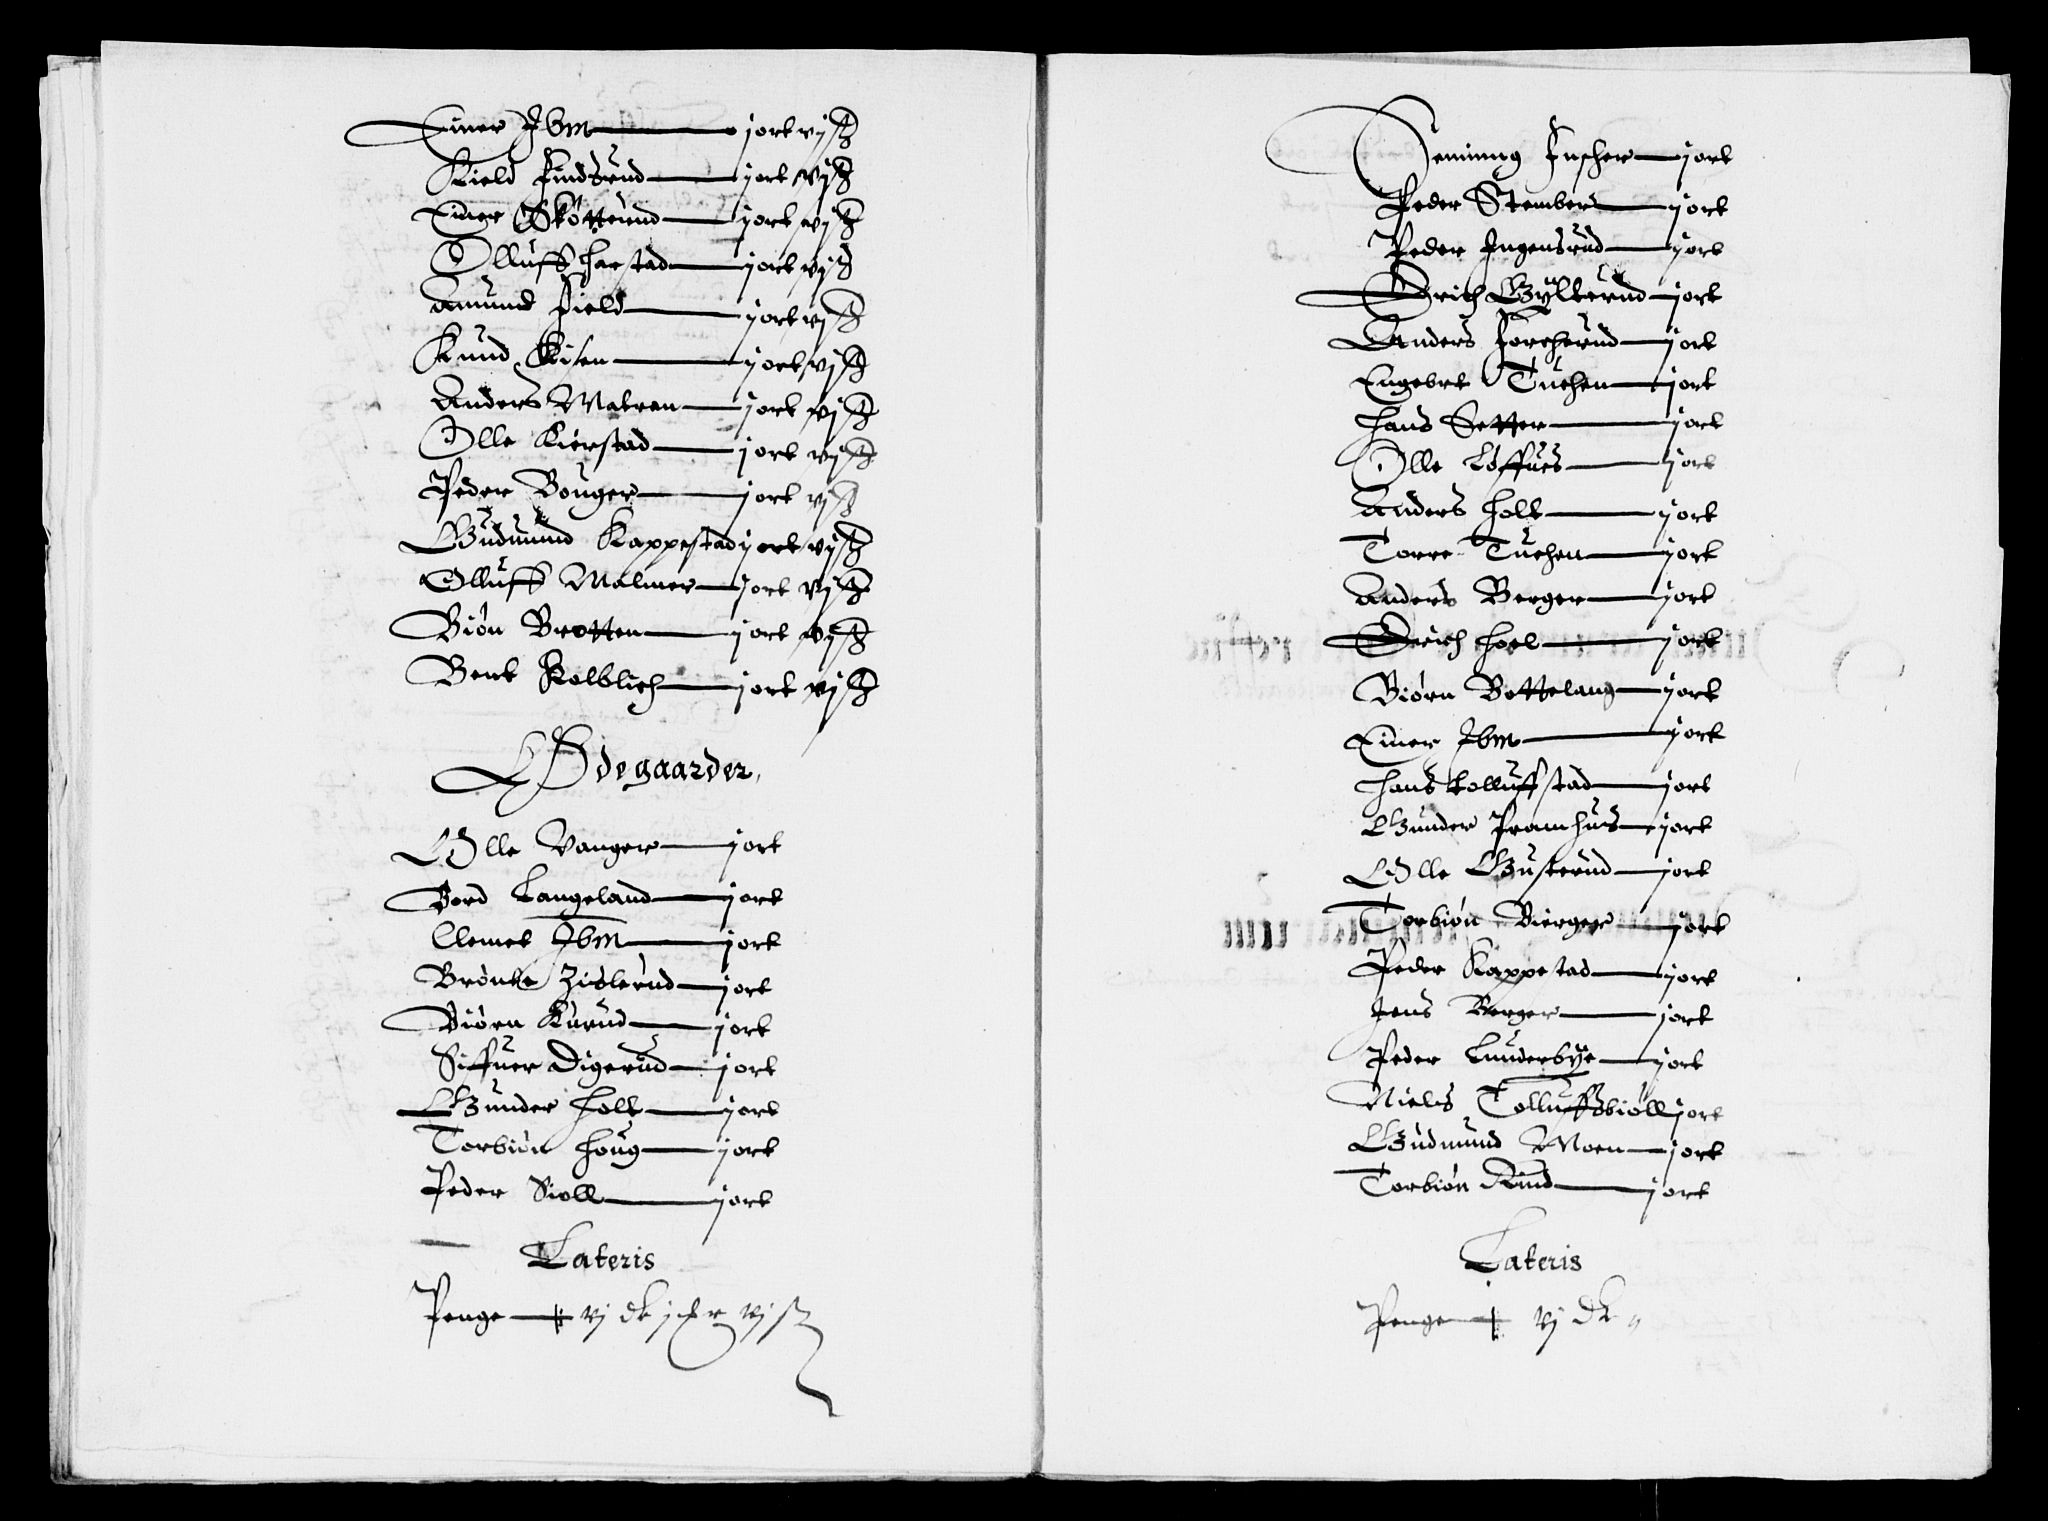 Einer Ibm — j ort vj ß
Kield Findsrud — j ort vj ß
Einer Skötterud — j ort vj ß
Olluff Harstad — j ort vj ß
Amund Field — j ort vj ß
Knud — j ort vj ß
Anders Matran — j ort vj ß
Olle Kierstad — j ort vj ß
Peder Bouger — j ort vj ß
Gudmund Kappestad j ort vj ß
Olluff Malmer — j ort vj ß
Biön Brotten — j ort vj ß
Bent Kolblich — j ort vj ß
Ödegaarder,
Olle Vanger — j ort
Bord Langeland — j ort
Clemet Ibm — j ort
Brönte Zislerud — j ort
Biörn Kurud — j ort
Siffuer Digerud — j ort
Gunder Holt — j ort
Torbiön Houg — j ort
Peder Sioll — j ort
Lateris
Penge — vj dlr j ort vj ß
Heming Fuscher — j ort
Peder Stember — j ort
Peder Ingensrud — j ort
Erich Gylterud — j ort
Anders Forcherud — j ort
Engebrt Tuchen — j ort
Hans Setter — j ort
Olle Löffues — j ort
Anders Holt — j ort
Torre Tuchen — j ort
Anders Berger — j ort
Erich Hoel — j ort
Biörn Bottelang — j ort
Einer Ibm — j ort
Hans tolluffstad — j ort
Gunder Pramhus — j ort
Olle Gusterud — j ort
Torbiön Bierger — j ort
Peder Kappestad — j ort
Jens Berger — j ort
Peder Lunderbye — j ort
Niels Tolluffsbiöll j ort
Gudmund Moen — j ort
Torbiön Rud — j ort
Lateris
Penge — vj dlr